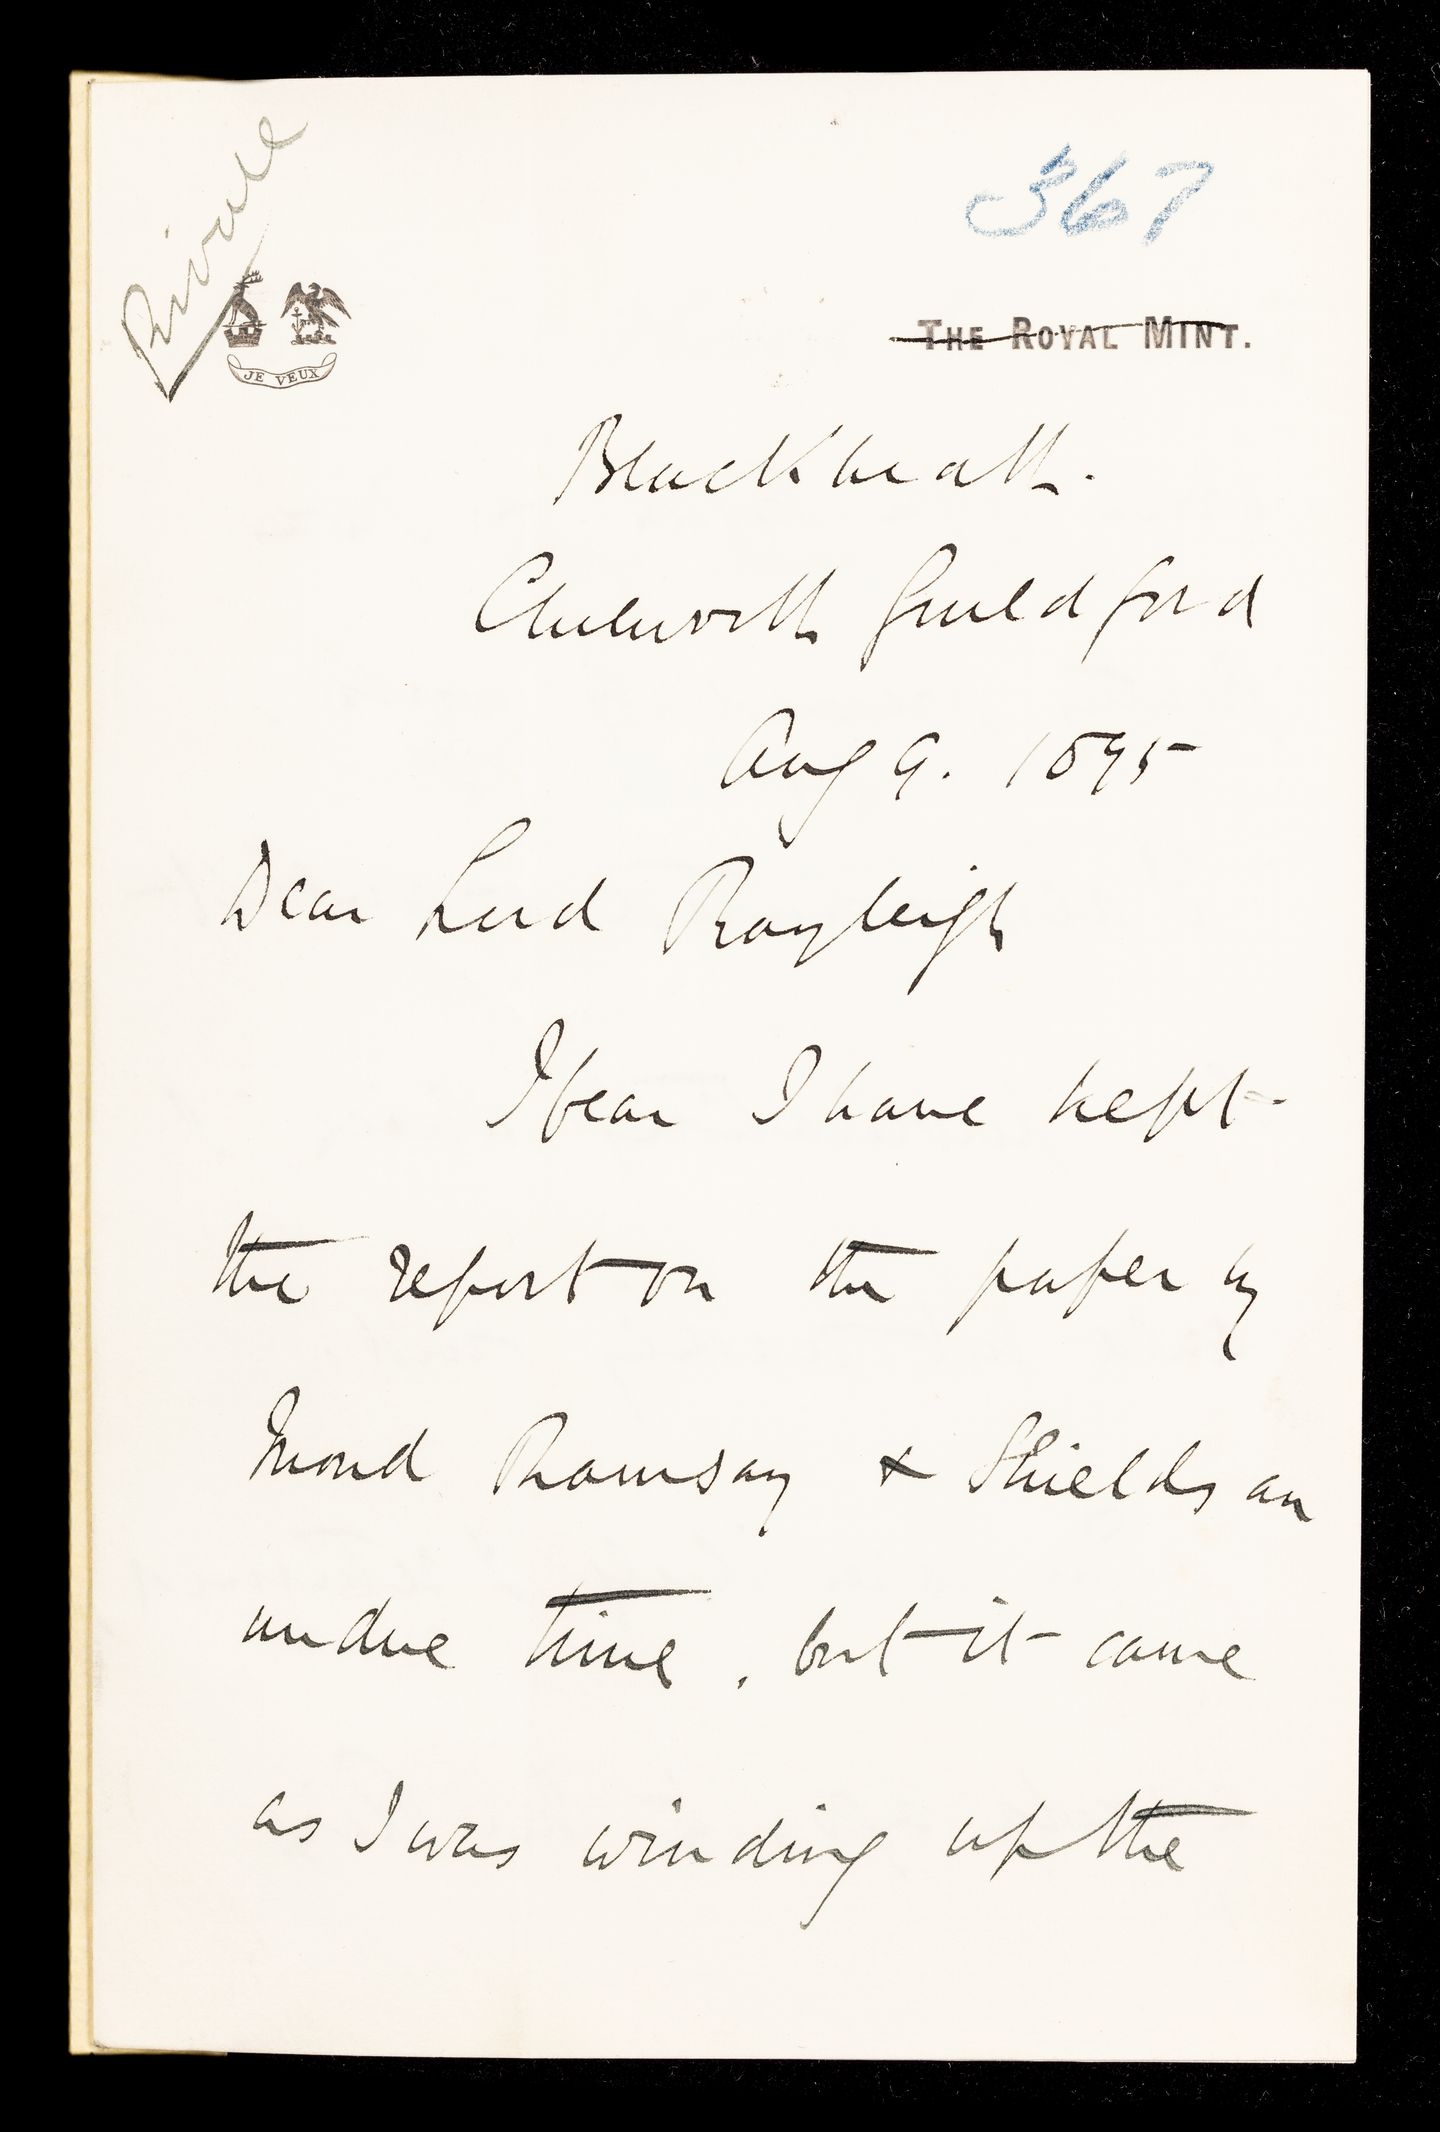 Private
367
JE VEUX
THE ROYAL MINT.
Blackheath.
Chilworth Guildford
Aug 9. 1895
Dear Lord Rayleigh
I fear I have kept
the report on the paper by
Mond Ramsay & Shields an
undue time, but it came
as I was winding up the